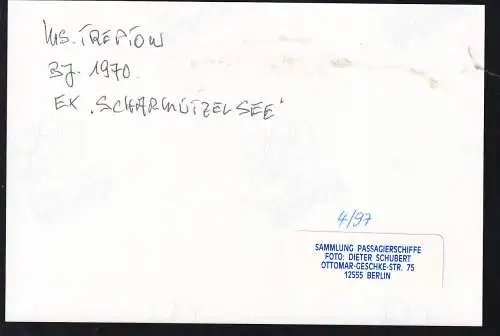 MS. TREPTOW
BJ. 1970.
EX "SCHARMÜTZELSEE"
4/97
SAMMLUNG PASSAGIERSCHIFFE
FOTO: DIETER SCHUBERT
OTTOMAR-GESCHKE-STR. 75
12555 BERLIN